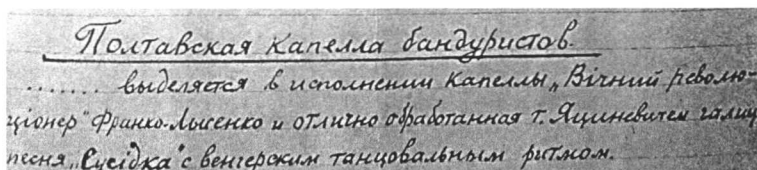 Полтавская капелла бандуристов.
....... выделяется в исполнении капеллы „Вічний револю-
ціонер" Франко-Лысенко и отлично обработанная т. Яциневичем галиц
песня „Сусідка" с венгерским танцовальным ритмом.